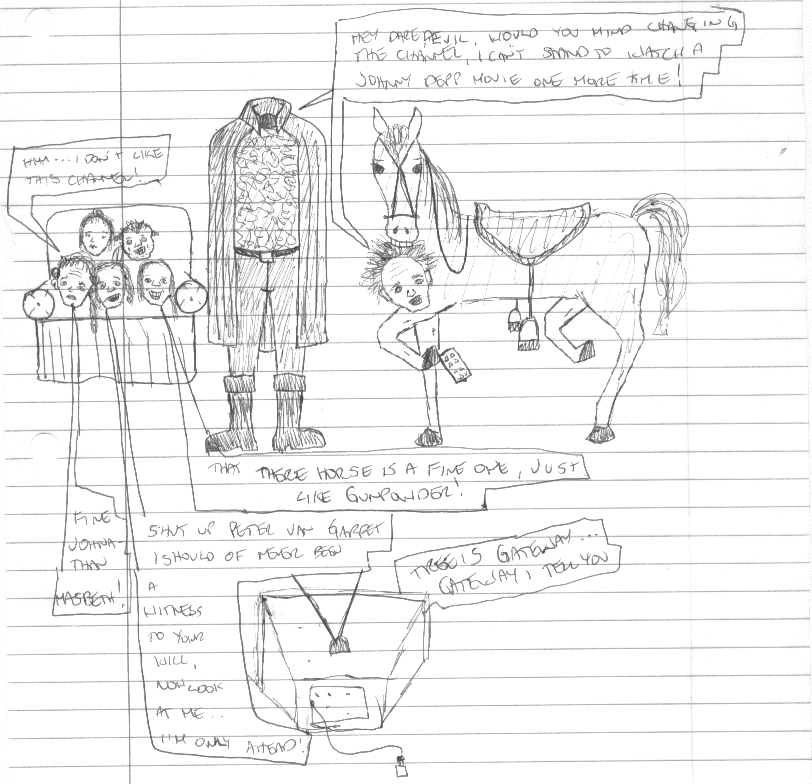 HEY DAREDEVIL, WOULD YOU MIND CHANGING
THE CHANNEL, I CAN'T STAND TO WATCH A
JOHNNY DEPP MOVIE ONE MORE TIME!
HHH... I DON'T LIKE
THIS CHANNEL!
THAT THERE HORSE IS A FINE ONE, JUST
LIKE GUNPOWDER!
FINE
JOHNA-
THAN
MASBETH!
SHUT UP PETER VAN GARRET
I SHOULD OF NEVER BEEN
A
WITNESS
TO YOUR
WILL,
NOW LOOK
AT ME..
I'M ONLY AHEAD!
TREE IS GATEWAY...
GATEWAY I TELL YOU